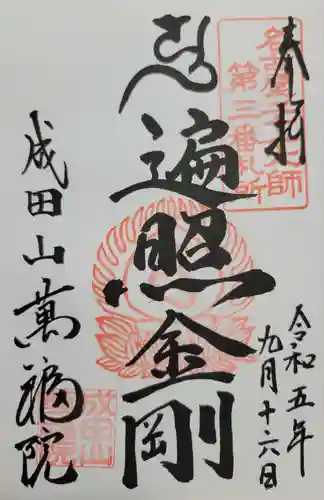 奉拝
名古屋大師
第三番札所
遍照金剛
令和五年
九月十六日
成田山萬福院
成田山